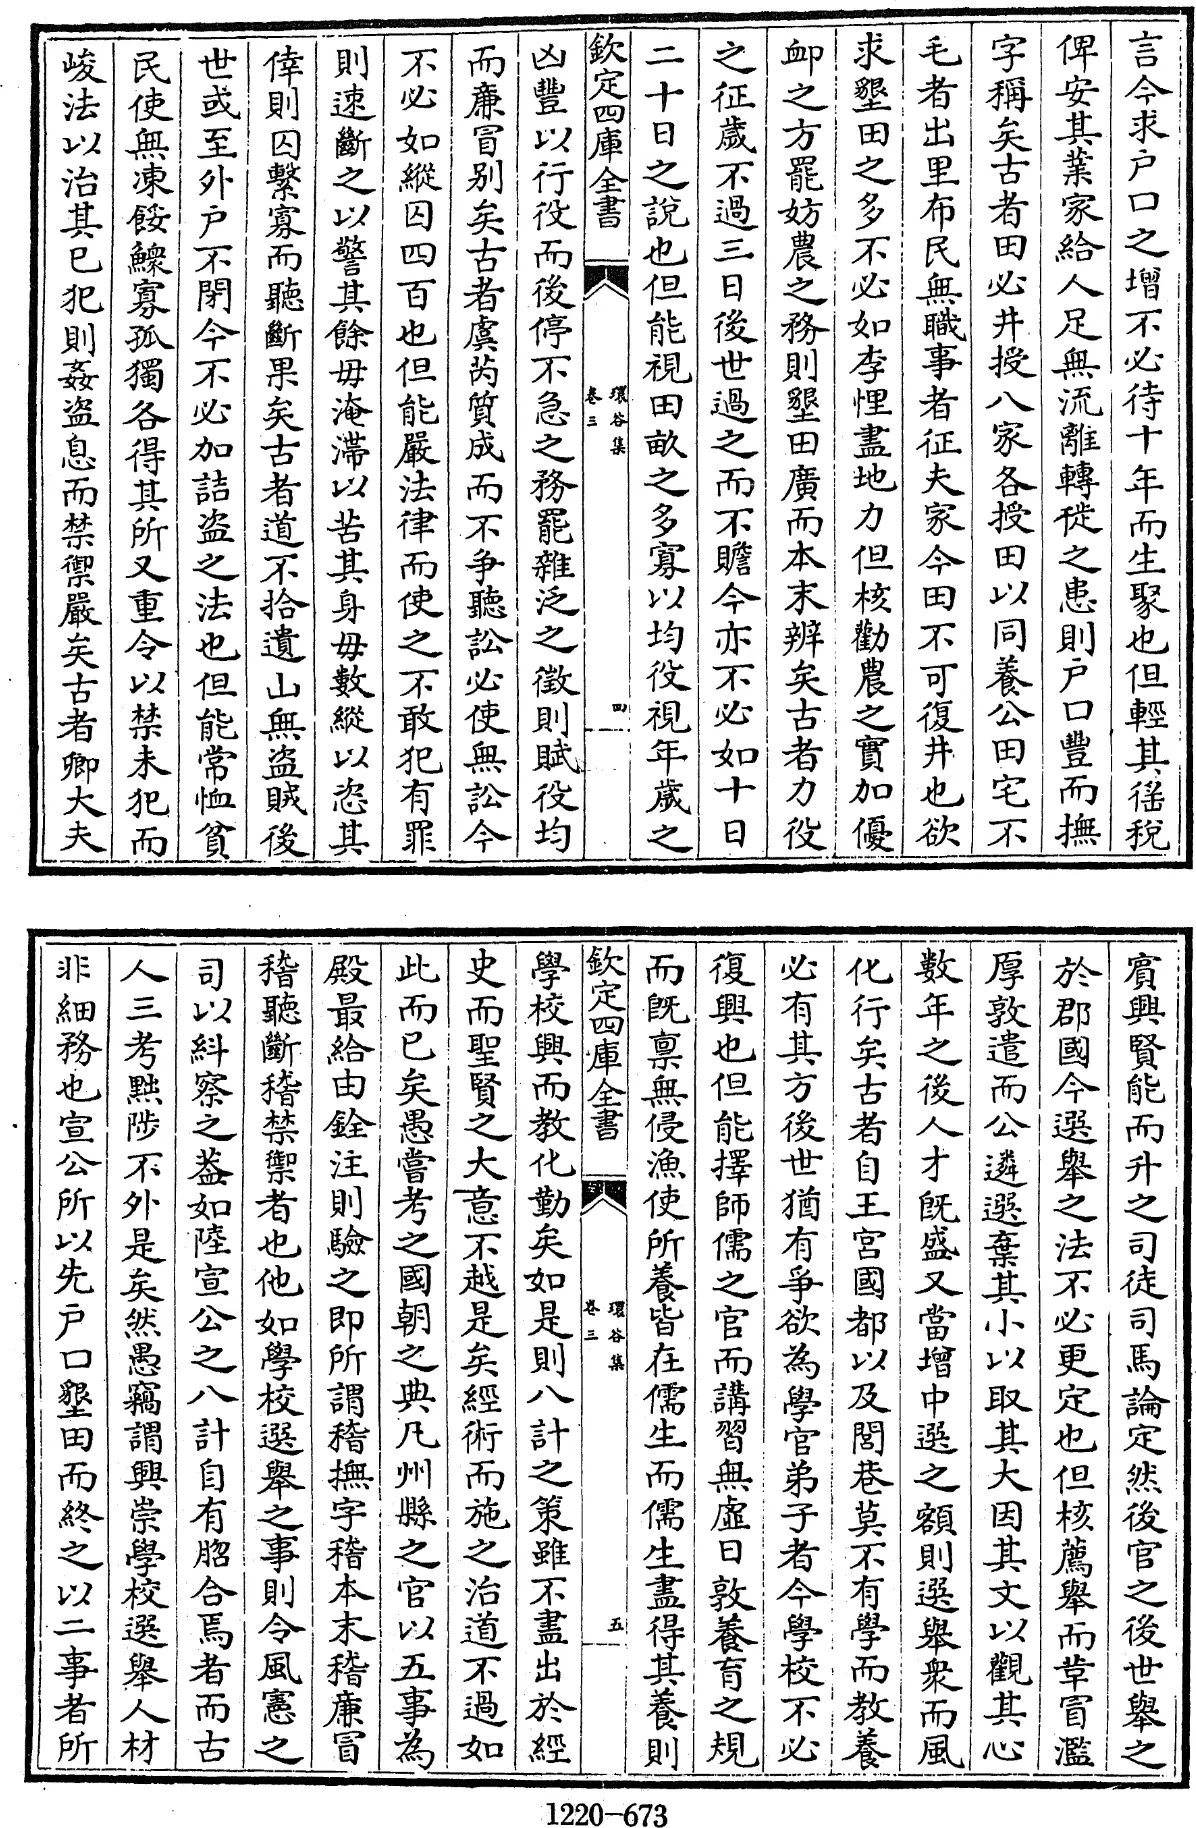 言今求户口之增不必待十年而生聚也但輕其徭稅
俾安其業家給人足無流離轉徙之患則户口豐而撫
字稱矣古者田必井授八家各授田以同養公田宅不
毛者出里布民無職事者征夫家今田不可復井也欲
求墾田之多不必如李悝盡地力但核勸農之實加優
䘏之方罷妨農之務則墾田廣而本末辨矣古者力役
之征歲不過三日後世過之而不贍今亦不必如十日
二十日之說也但能視田畝之多寡以均役視年歲之
欽定四庫全書
環谷集
卷三
四
凶豐以行役而後停不急之務罷雜泛之徵則賦役均
而廉冒别矣古者虞芮質成而不争聽訟必使無訟今
不必如縱囚四百也但能嚴法律而使之不敢犯有罪
則速斷之以警其餘毋淹滯以苦其身毋數縱以恣其
倖則囚繫寡而聽斷果矣古者道不拾遺山無盗賊後
世或至外户不閉今不必加詰盗之法也但能常恤貧
民使無凍餒鰥寡孤獨各得其所又重令以禁未犯而
峻法以治其已犯則姦盗息而禁禦嚴矣古者卿大夫
賓興賢能而升之司徒司馬論定然後官之後世舉之
於郡國今選舉之法不必更定也但核薦舉而革冒濫
厚敦遣而公遴選棄其小以取其大因其文以觀其心
數年之後人才既盛又當增中選之額則選舉衆而風
化行矣古者自王宫國都以及閭巷莫不有學而教養
必有其方後世猶有爭欲為學官弟子者今學校不必
復興也但能擇師儒之官而講習無虚日敦養育之規
而旣稟無侵漁使所養皆在儒生而儒生盡得其養則
欽定四庫全書
環谷集
卷三
五
學校興而教化勤矣如是則八計之策雖不盡出於經
史而聖賢之大意不越是矣經術而施之治道不過如
此而已矣愚嘗考之國朝之典凡州縣之官以五事為
殿最給由銓注則驗之即所謂稽撫字稽本末稽廉冒
稽聽斷稽禁禦者也他如學校選舉之事則令風憲之
司以糾察之葢如陸宣公之八計自有脗合焉者而古
人三考黜陟不外是矣然愚竊謂興崇學校選舉人材
非細務也宣公所以先户口墾田而終之以二事者所
1220-673